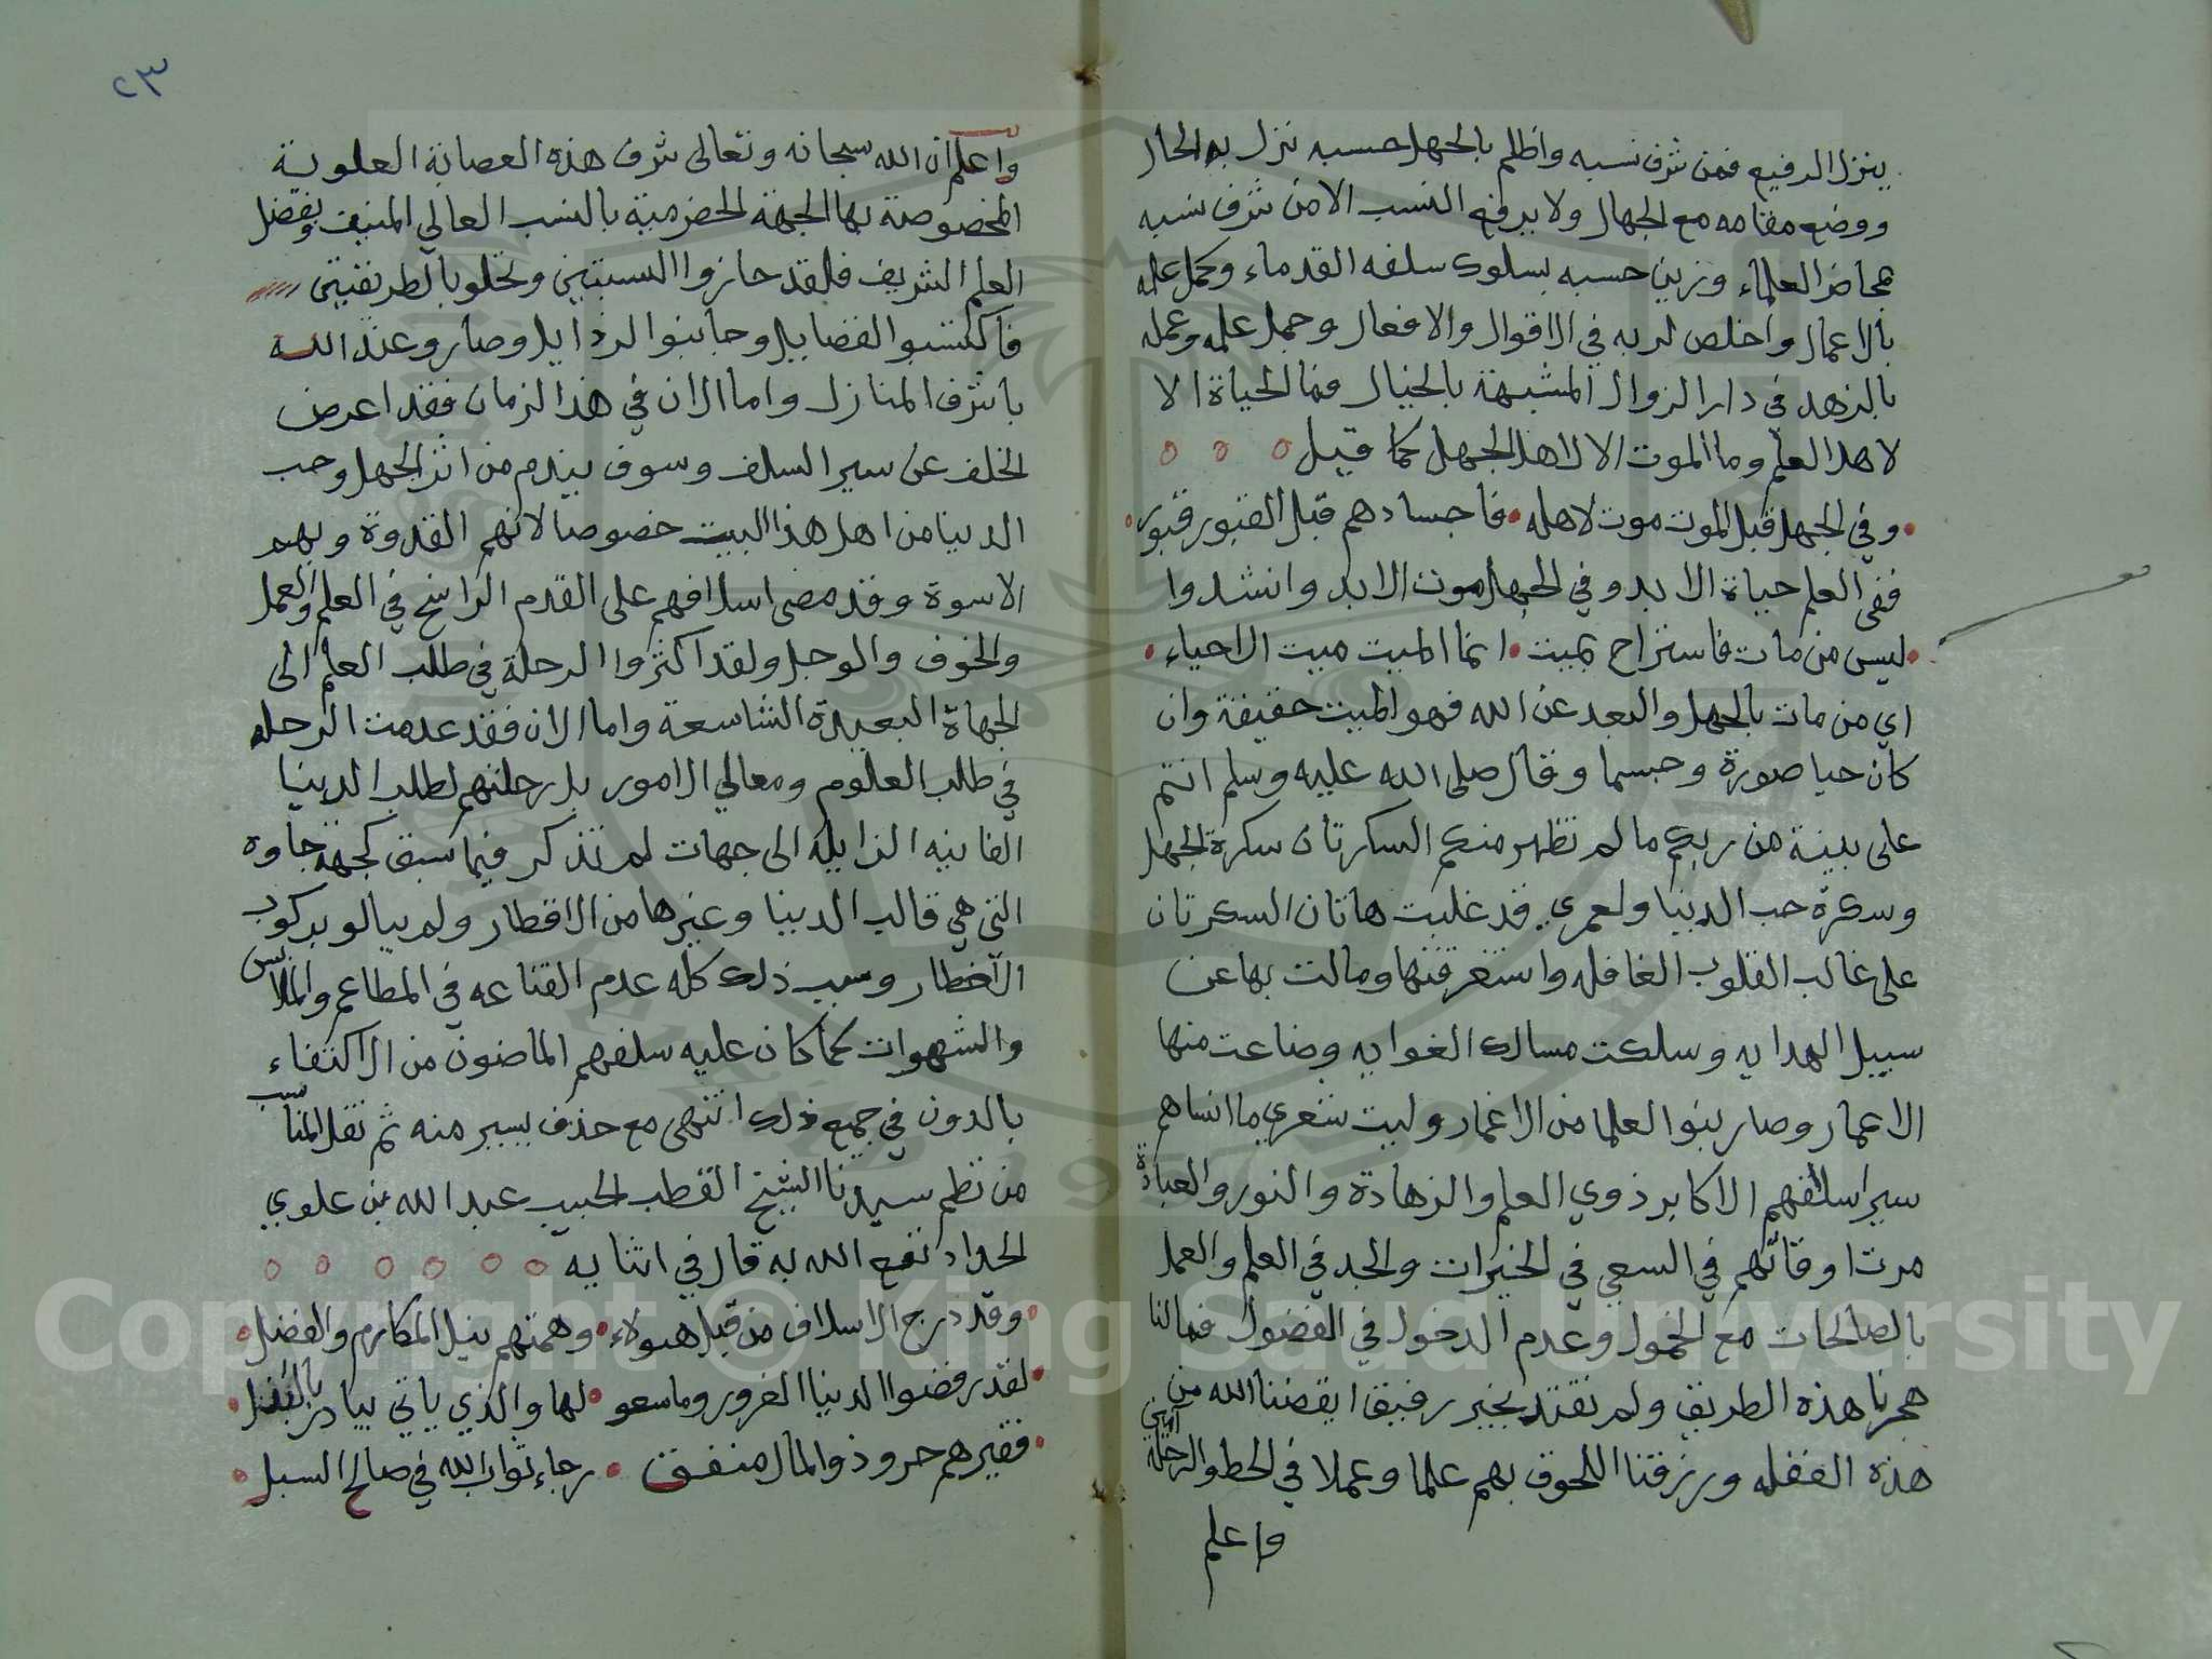 ينزل الرفيع فمن شرف نسبه واظلم بالجهل حسبه نزل به الحال
ووضع مقامه مع الجهال ولا يرفع النسب الا من شرف نسبه
بمحاضر العلماء وزين حسبه بسلوك سلفه القدماء وكمل علمه
بالاعمال واخلص لربه في الاقوال والافعال وجمل علمه وعمله
بالزهد في دار الزوال المشبهة بالخيال فما الحياة الا
لاهل العلم وما الموت الا لاهل الجهل كما قيل
وفي الجهل قبل الموت موت لاهله • فاجسادهم قبل القبور قبور
ففي العلم حياة الابد وفي الجهل موت الابد وانشدوا
ليس من مات فاستراح بميت • انما الميت ميت الاحياء
اي من مات بالجهل والبعد عن الله فهو الميت حقيقة وان
كان حيا صورة وجسما وقال صلى الله عليه وسلم انتم
على بينة من ربكم ما لم تظهر منكم السكرتان سكرة الجهل
وسكرة حب الدنيا ولعمري قد غلبت هاتان السكرتان
على غالب القلوب الغافله واستغرقتها ومالت بها عن
سبيل الهدايه وسلكت مسالك الغوايه وضاعت منها
الاعمار وصار بنوا العلما من الاغمار وليت شعري ما انساهم
سير اسلافهم الاكابر ذوي العلم والزهادة والنور والعبادة
مرت اوقاتهم في السعي في الخيرات والجد في العلم والعمل
بالصالحات مع الخمول وعدم الدخول في الفضول فما لنا
هجرنا هذه الطريق ولم نقتد بخير رفيق ايقضنا الله من
هذه الغفله ورزقنا اللحوق بهم علما وعملا في الحط والرحلة آمين
واعلم
٢٣
واعلم ان الله سبحانه وتعالى شرف هذه العصابة العلوية
المخصوصة بها الجهة الحضرمية بالنسب العالي المنيف وبفضل
العلم الشريف فلقد حازوا النسبتين وتحلو بالطريقتين
فاكتسبوا الفضايل وجانبوا الرذايل وصارو عند الله
باشرف المنازل واما الان في هذا الزمان فقد اعرض
الخلف عن سير السلف وسوف يندم من اثر الجهل وحب
الدنيا من اهل هذا البيت خصوصا لانهم القدوة وبهم
الاسوة وقد مضى اسلافهم على القدم الراسخ في العلم والعمل
والخوف والوجل ولقد اكثروا الرحلة في طلب العلم الى
الجهاة البعيدة الشاسعة واما الان فقد عدمت الرحله
في طلب العلوم ومعالي الامور بل رحلتهم لطلب الدنيا
الفانيه الزايله الى جهات لم تذكر فيما سبق كجهة جاوه
التي هي قالب الدنيا وغيرها من الاقطار ولم يبالو بركوب
الاخطار وسبب ذلك كله عدم القناعه في المطاعم والملابس
والشهوات كما كان عليه سلفهم الماضون من الاكتفاء
بالدون في جميع ذلك انتهى مع حذف يسير منه ثم نقل المناسب
من نظم سيدنا الشيخ القطب الحبيب عبد الله بن علوي
الحداد نفع الله به قال في اثنايه
وقد درج الاسلاف من قبل هولاء • وهمتهم نيل المكارم والفضل
لقد رفضوا الدنيا الغرور وما سعو • لها والذي ياتي يبادر بالبذل
فقيرهم حر وذو المال منفق • رجاء ثواب الله في صالح السبل
Copyright © King Saud University